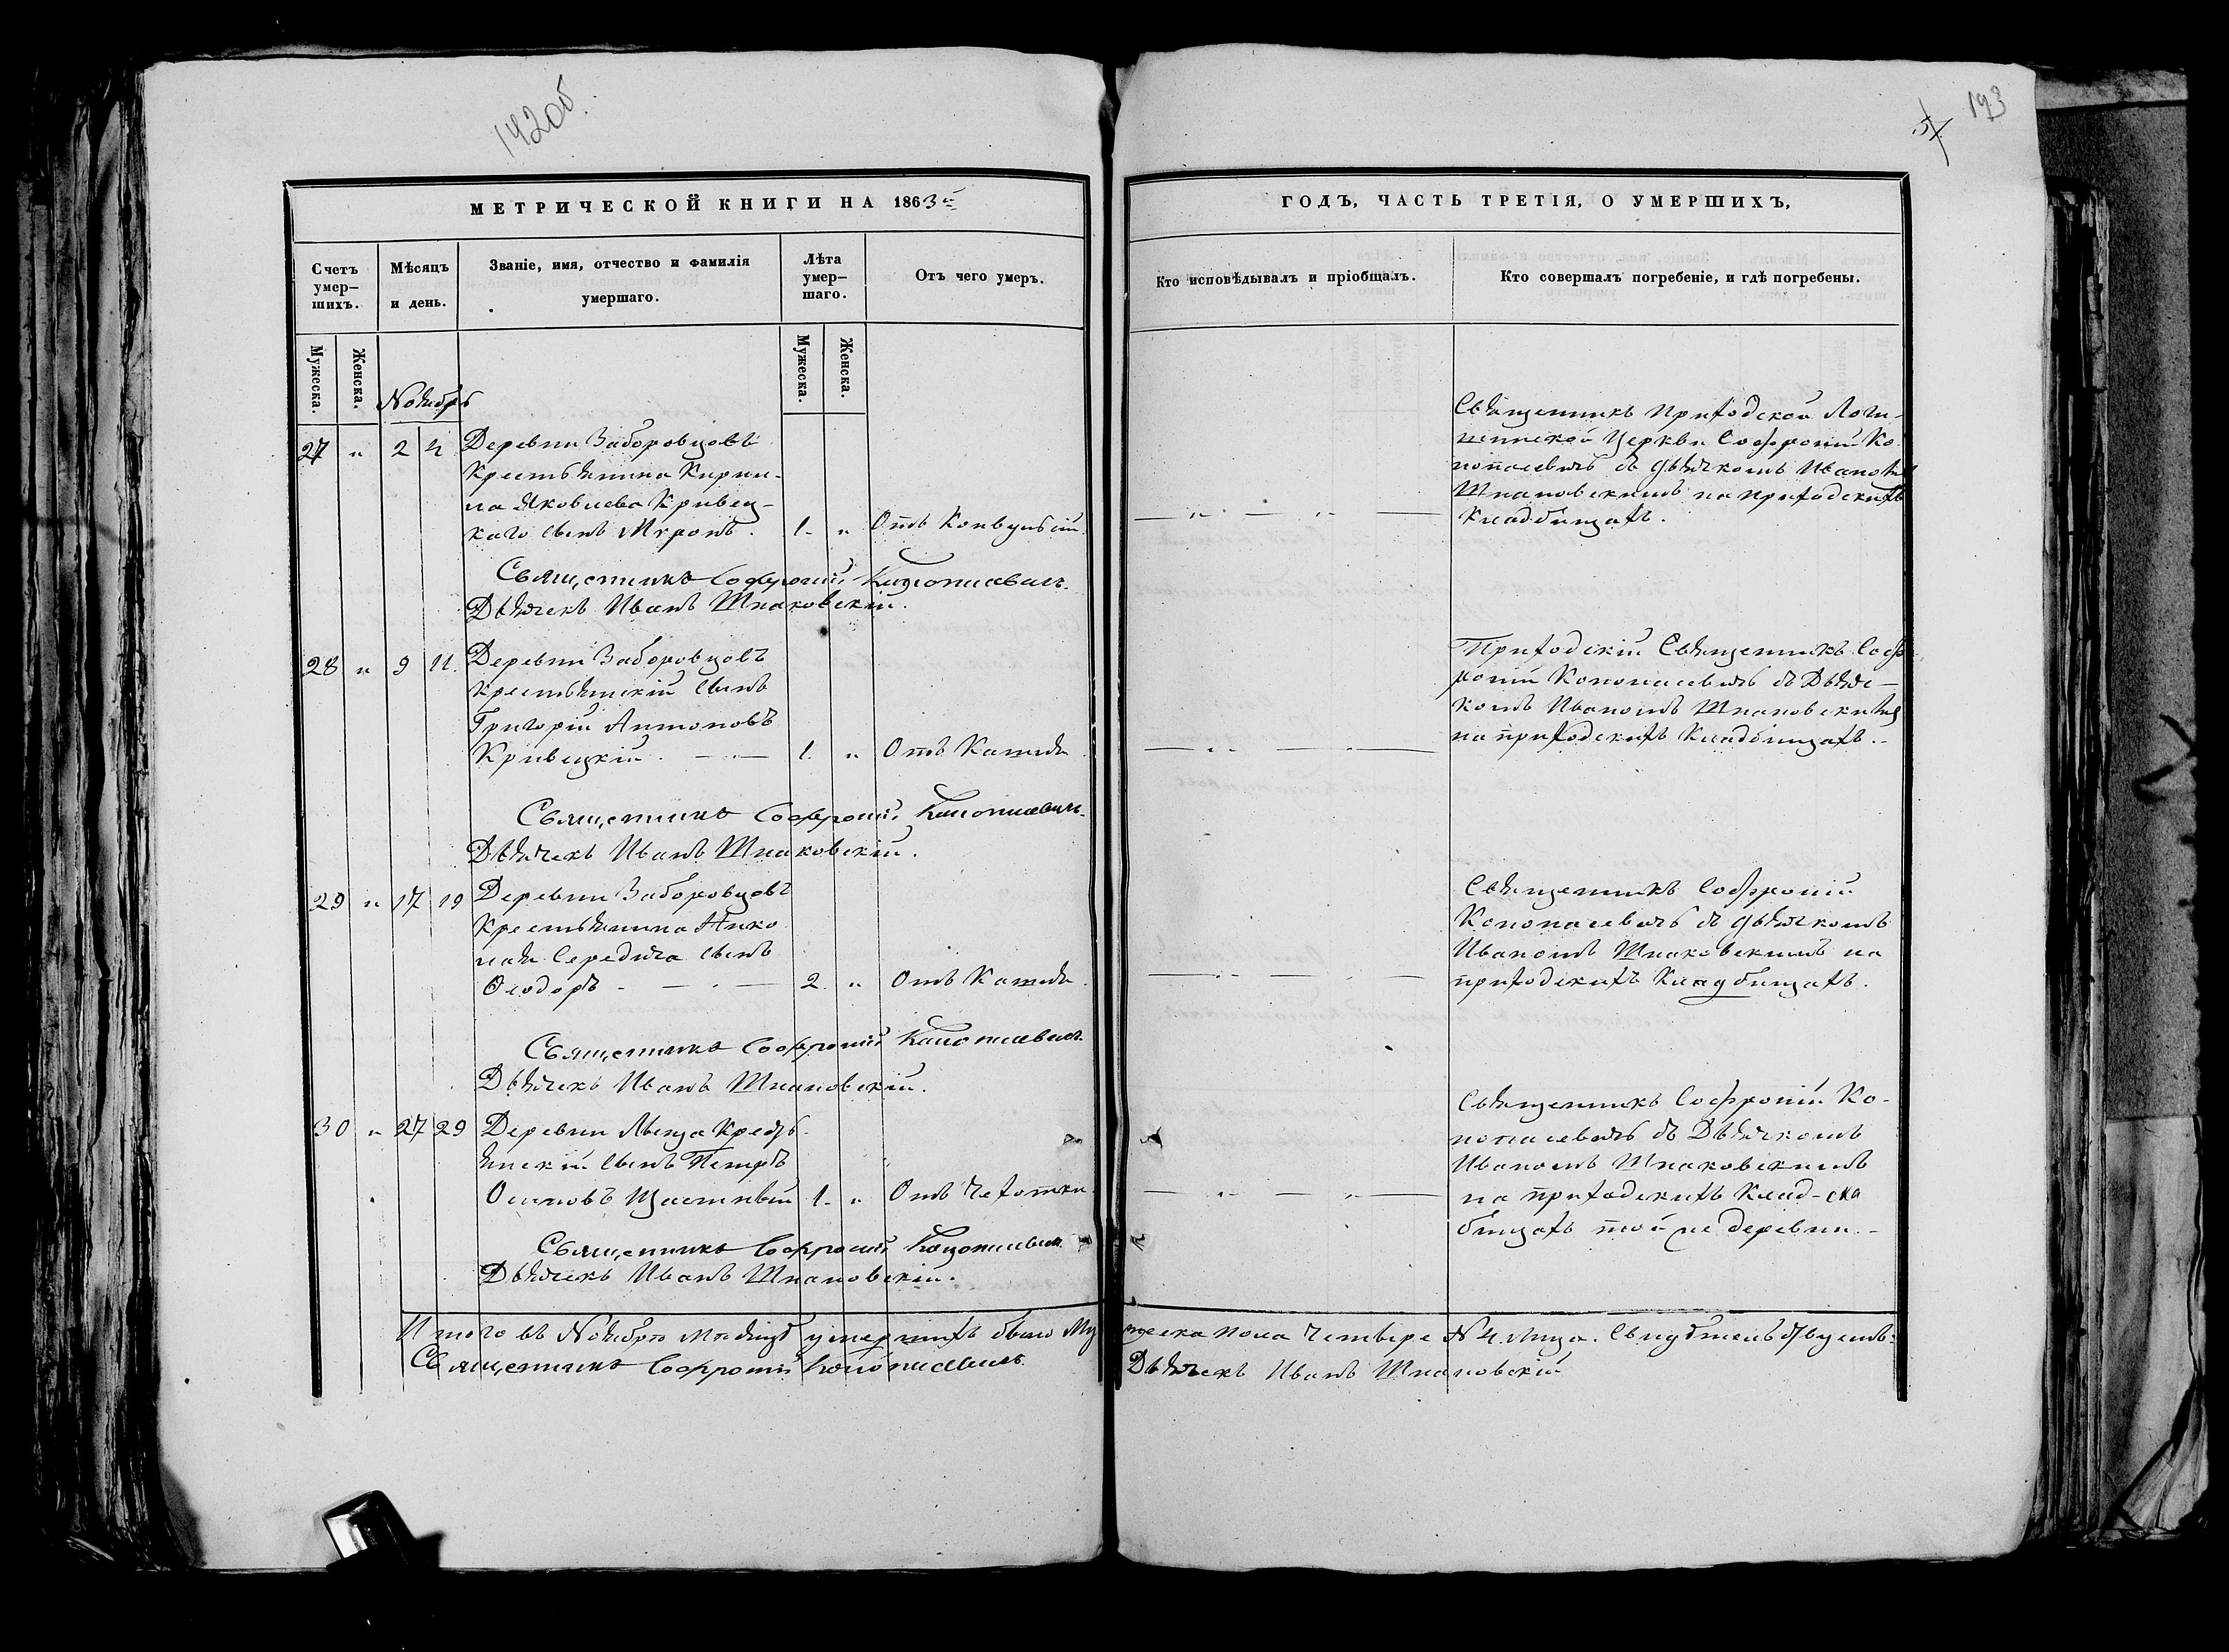 142об.
193
МЕТРИЧЕСКОЙ КНИГИ НА 1863й
ГОДЪ, ЧАСТЬ ТРЕТІЯ, О УМЕРШИХЪ,
Счетъ умер-шихъ.
Мѣсяцъ и день.
Званіе, имя, отчество и фамилія умершаго.
Лѣта умер-шаго.
Отъ чего умеръ.
Кто исповѣдывалъ и пріобщалъ.
Кто совершалъ погребеніе, и гдѣ погребены.
Мужеска.
Женска.
Мужеска.
Женска.
Ноябрь
27 " 2 4 Деревни Заборовцовъ
Крестьянина Кирил-
ла Яковлева Кривец-
каго сынъ Миронъ. 1. " Отъ Конвульсій.
Священникъ приходской
Церкви Софроній Ко-
нопасевичъ съ дьячкомъ Иваномъ
Шпаковскимъ на приходскихъ
кладбищахъ.
Священникъ Софроній Конопасевичъ.
Дьячекъ Иванъ Шпаковскій.
28 " 9 11 Деревни Заборовцовъ
Крестьянскій сынъ
Григорій Антоновъ
Кривецкій. 1. " Отъ Кашля
Приходскій Священникъ Соф-
роній Конопасевичъ съ Дьяч-
комъ Иваномъ Шпаковскимъ
на приходскихъ кладбищахъ.
Священникъ Софроній Конопасевичъ.
Дьячекъ Иванъ Шпаковскій.
29 " 17 19 Деревни Заборовцовъ
Крестьянина Нико
лая Середича сынъ
Ѳеодоръ 2. " Отъ Кашля.
Священникъ Софроній
Конопасевичъ съ дьячкомъ
Иваномъ Шпаковскимъ на
приходскихъ кладбищахъ.
Священникъ Софроній Конопасевичъ.
Дьячекъ Иванъ Шпаковскій.
30 " 27 29 Деревни
янскій сынъ Петръ
Осиповъ Щастный 1. " Отъ Чехотки.
Священникъ Софроній Ко-
нопасевичъ съ Дьячкомъ
Иваномъ Шпаковскимъ
на приходскихъ клад-
бищахъ той же деревни.
Священникъ Софроній Конопасевичъ
Дьячекъ Иванъ Шпаковскій.
Итого въ Ноябрѣ мѣсяцѣ умершихъ было Мужеска пола Четыре № 4. лица.
Священникъ Софроній Конопасевичъ. Дьячекъ Иванъ Шпаковскій